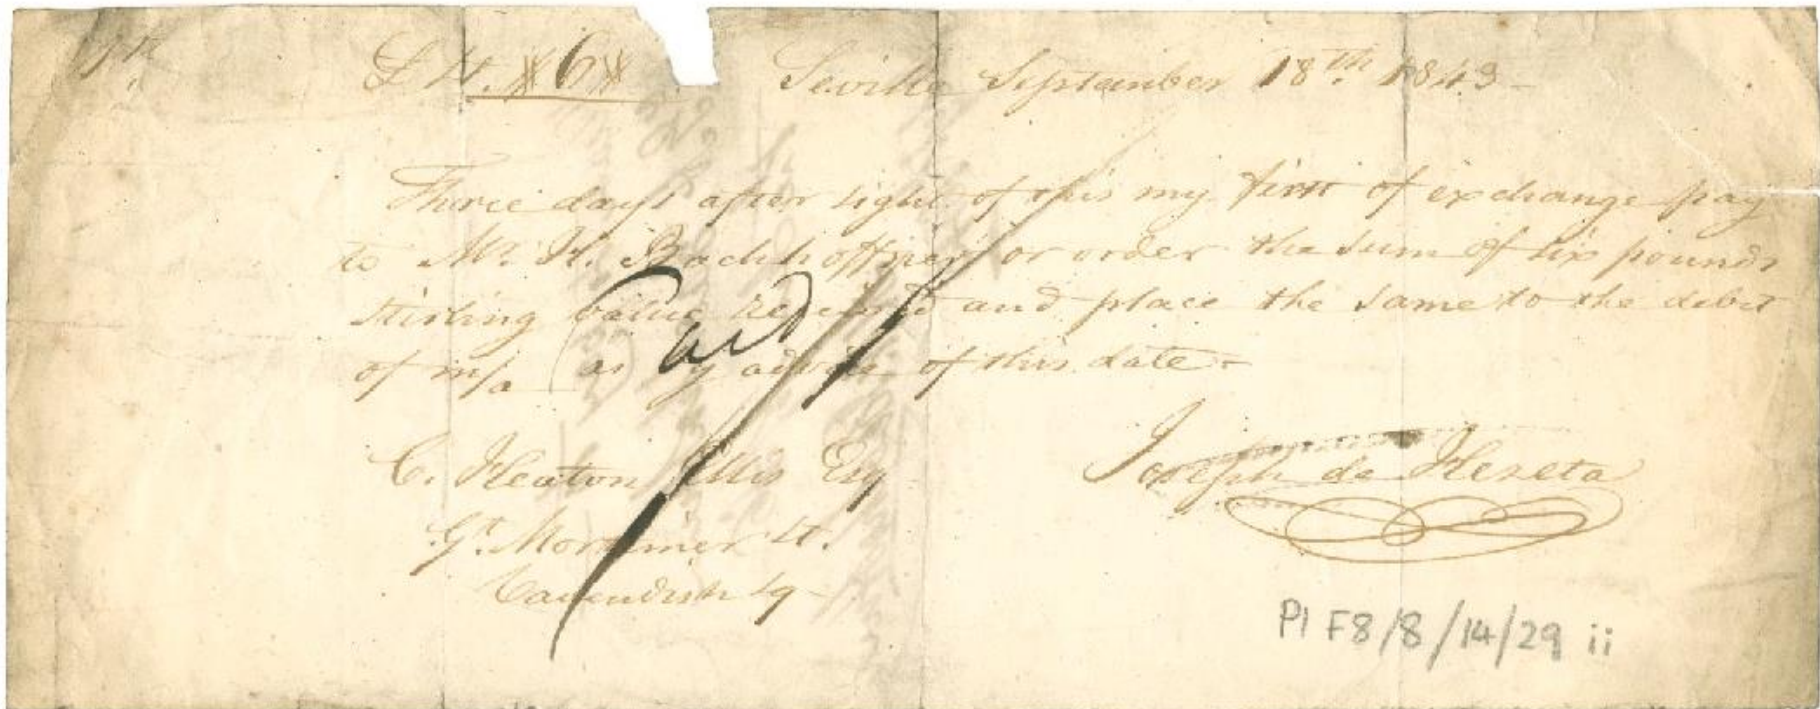 £ St. #6# Seville September 18th 1843
Three days after sight of this my first of exchange pay
to Mr. H. Bachhoffner or order the sum of six pounds
stirling value received and place the same to the debit
of m/a as by advice of this date
Paid
C. Heaton Ellis Esq
Gt. Mortimer St.
Cavendish Sq
Joseph de Hereta
Pl F8/8/14/29 ii